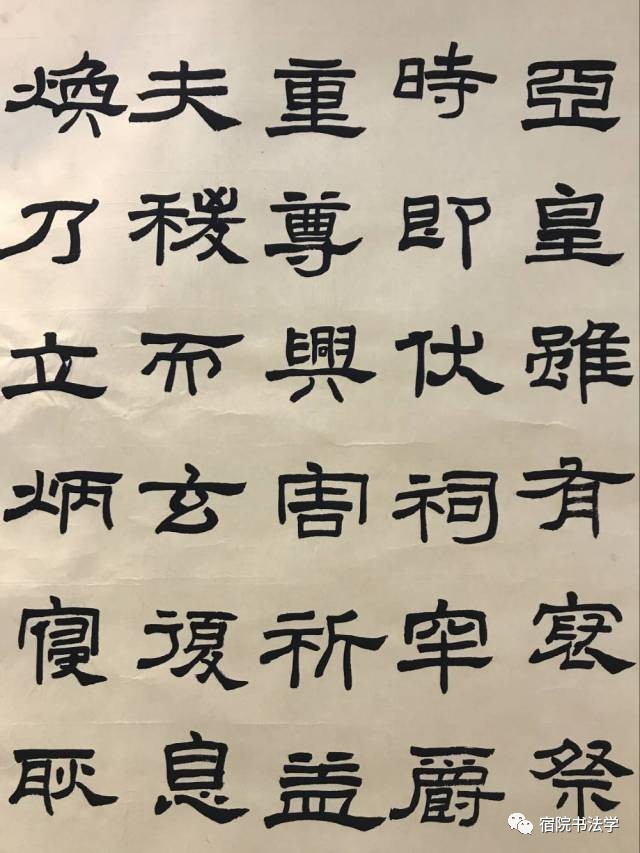 亞皇雖有㝡祭
時即伏祠罕爵
重尊興害祈盖
夫稷而玄復息
煥乃立炳寑耿
宿院书法学